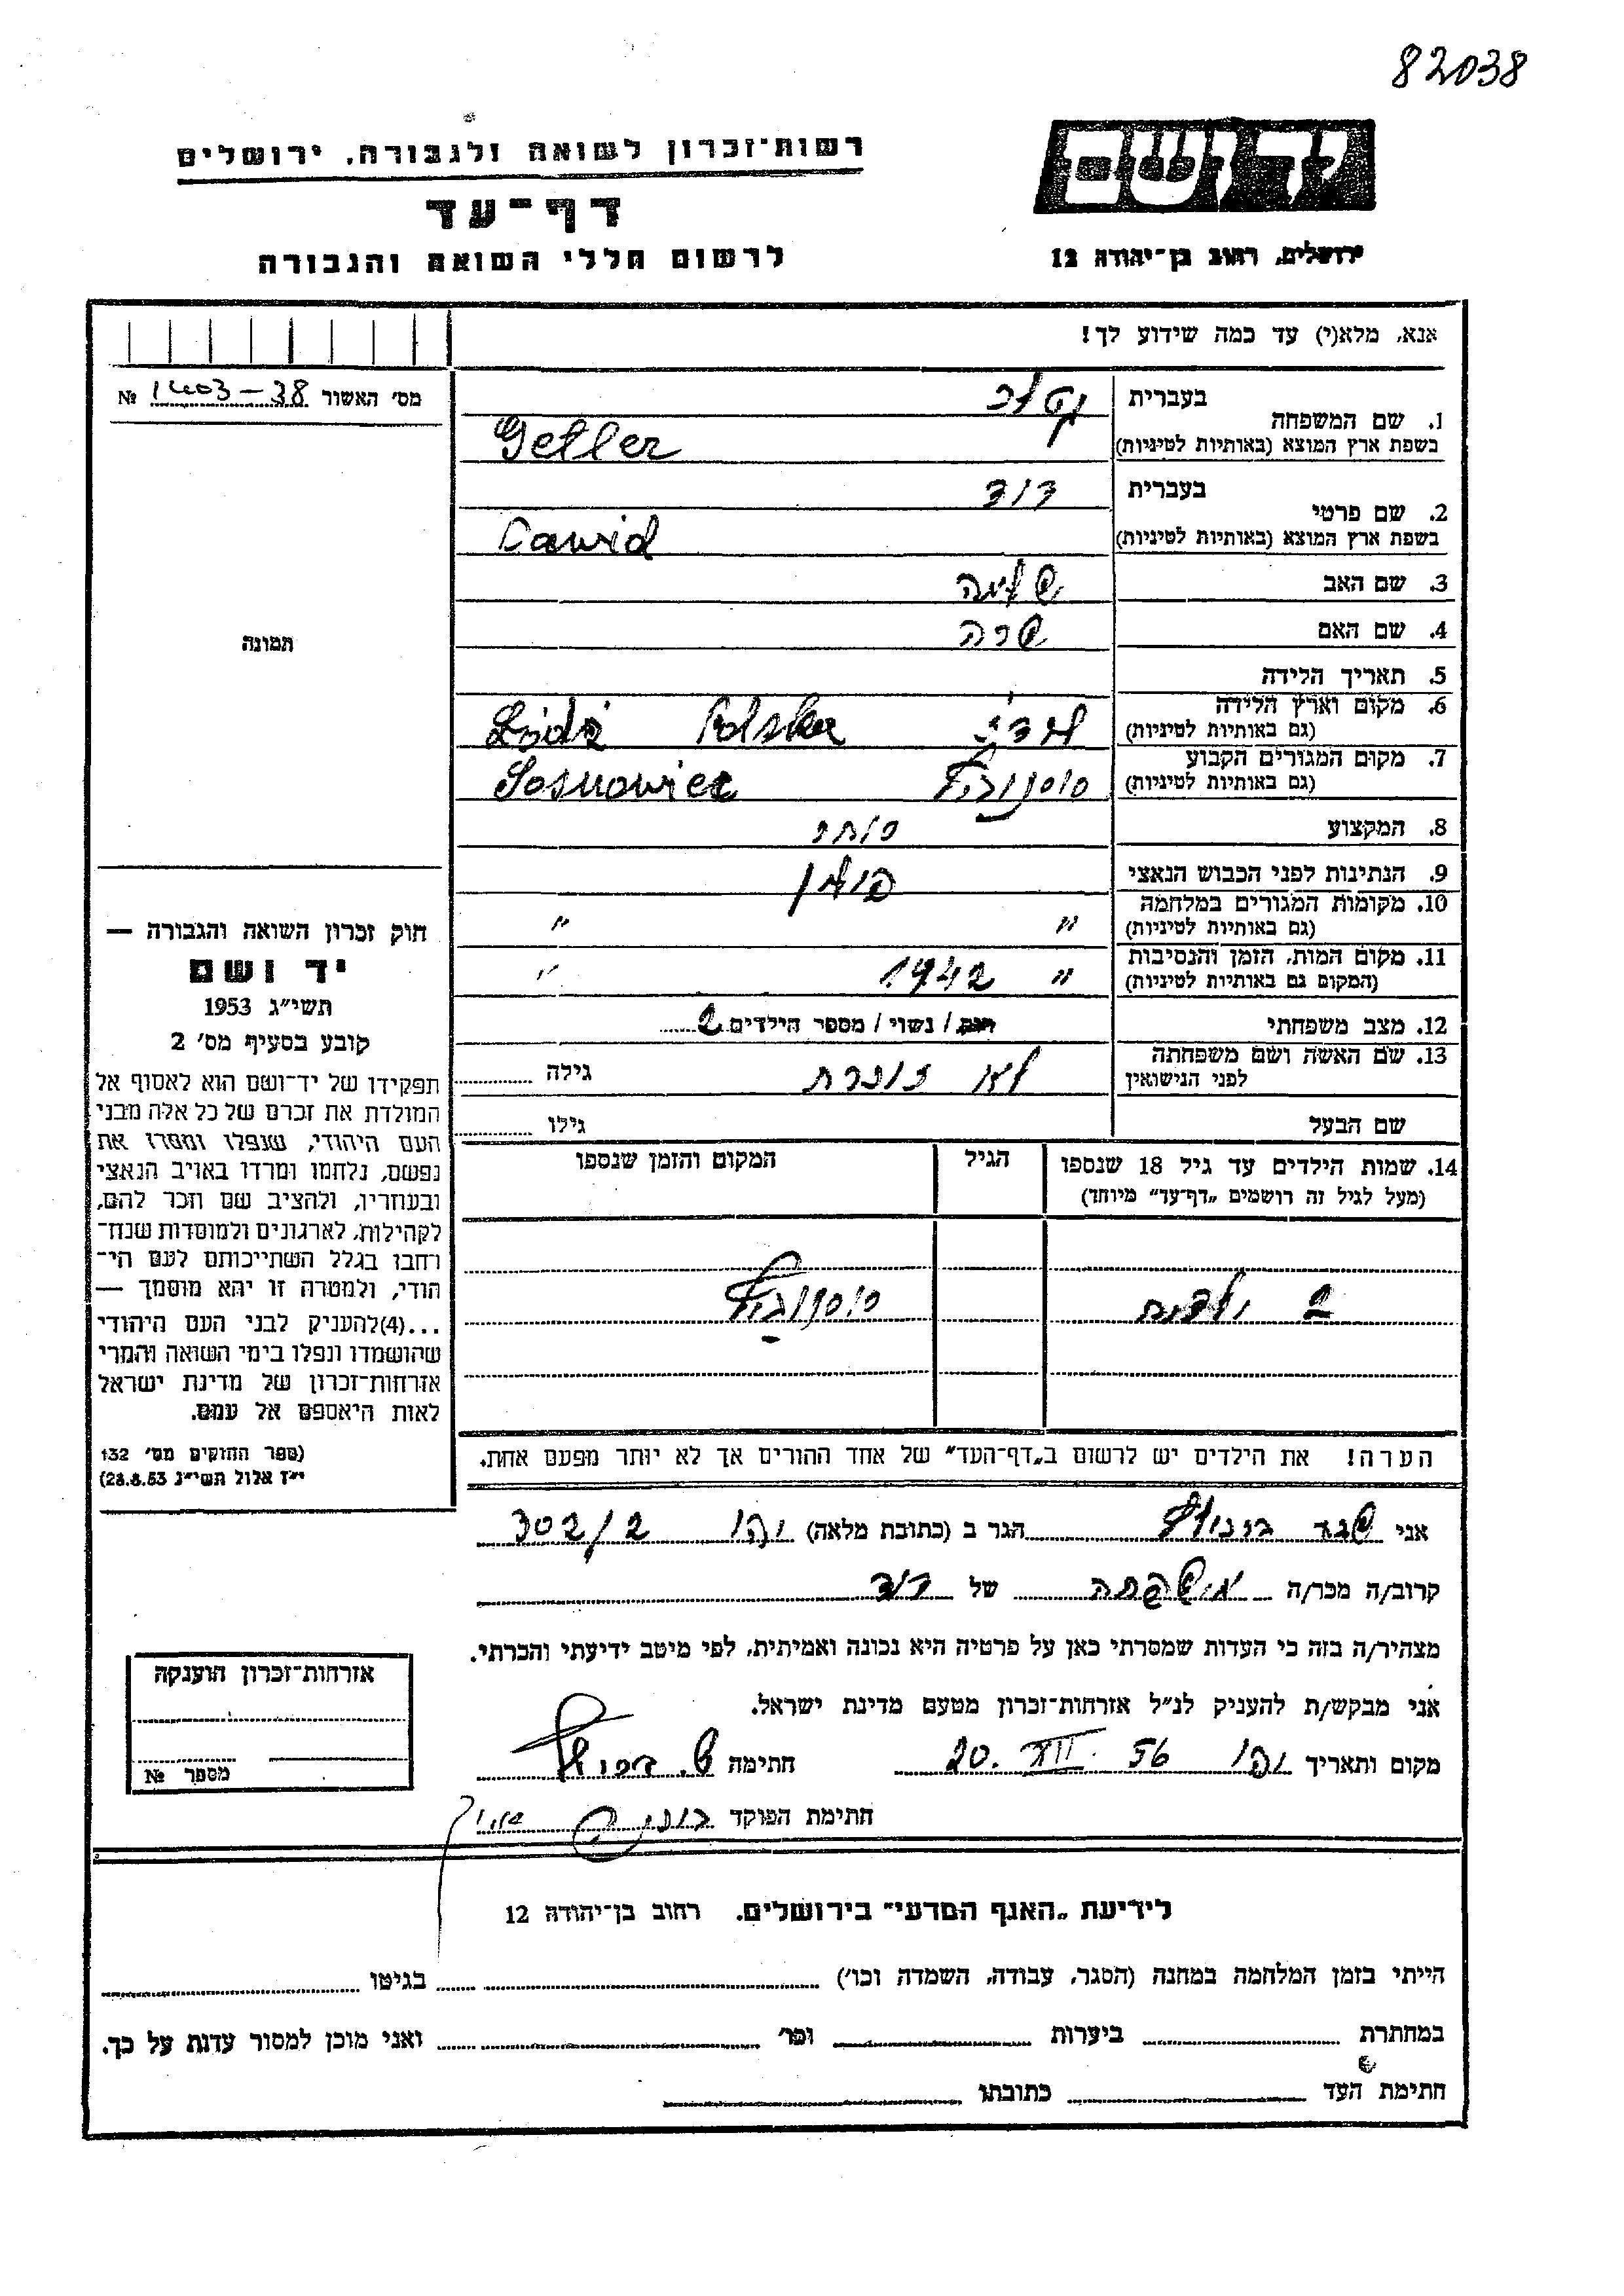 82038
יד ושם
ירושלים, רחוב בן-יהודה 12
רשות-זכרון לשואה ולגבורה, ירושלים
דף-עד
לרשום חללי השואה והגבורה
אנא, מלא(י) עד כמה שידוע לך!
מס' האשור 1403-38 №
תמונה
1. שם המשפחה
בעברית גטלר
בשפת ארץ המוצא (באותיות לטיניות) Getler
2. שם פרטי
בעברית דוד
בשפת ארץ המוצא (באותיות לטיניות) Dawid
3. שם האב שלמה
4. שם האם שרה
5. תאריך הלידה
6. מקום וארץ הלידה
(גם באותיות לטיניות) לודז' Polska Łódź
7. מקום המגורים הקבוע
(גם באותיות לטיניות) סוסנוביץ Sosnowiec
8. המקצוע סוחר
9. הנתינות לפני הכבוש הנאצי פולין
10. מקומות המגורים במלחמה
(גם באותיות לטיניות) " "
11. מקום המות, הזמן והנסיבות
(המקום גם באותיות לטיניות) " 1942 "
12. מצב משפחתי רווק / נשוי / מספר הילדים 2
13. שם האשה ושם משפחתה
לפני הנישואין לא זוכרת גילה
שם הבעל גילו
14. שמות הילדים עד גיל 18 שנספו
(מעל לגיל זה רושמים „דף-עד" מיוחד)
הגיל
המקום והזמן שנספו
2 ילדים סוסנוביץ
הערה! את הילדים יש לרשום ב„דף-העד" של אחד ההורים אך לא יותר מפעם אחת.
חוק זכרון השואה והגבורה —
יד ושם
תשי"ג 1953
קובע בסעיף מס' 2
תפקידו של יד-ושם הוא לאסוף אל
המולדת את זכרם של כל אלה מבני
העם היהודי, שנפלו ומסרו את
נפשם, נלחמו ומרדו באויב הנאצי
ובעוזריו, ולהציב שם וזכר להם,
לקהילות, לארגונים ולמוסדות שנח-
רבו בגלל השתייכותם לעם הי-
הודי, ולמטרה זו יהא מוסמך —
...(4)להעניק לבני העם היהודי
שהושמדו ונפלו בימי השואה והמרי
אזרחות-זכרון של מדינת ישראל
לאות היאספם אל עמם.
(ספר החוקים מס' 132
י"ז אלול תשי"ג 28.8.53)
אני הגר ב (כתובת מלאה) 302/2
קרוב/ה מכר/ה משפחה של דוד
מצהיר/ה בזה כי העדות שמסרתי כאן על פרטיה היא נכונה ואמיתית, לפי מיטב ידיעתי והכרתי.
אני מבקש/ת להעניק לנ"ל אזרחות-זכרון מטעם מדינת ישראל.
מקום ותאריך 20. XII. 56 חתימה
חתימת הפוקד
אזרחות-זכרון הוענקה
מספר №
לידיעת „האגף המדעי" בירושלים. רחוב בן-יהודה 12
הייתי בזמן המלחמה במחנה (הסגר, עבודה, השמדה וכו') בגיטו
במחתרת ביערות וכו' ואני מוכן למסור עדות על כך.
חתימת העד כתובתו